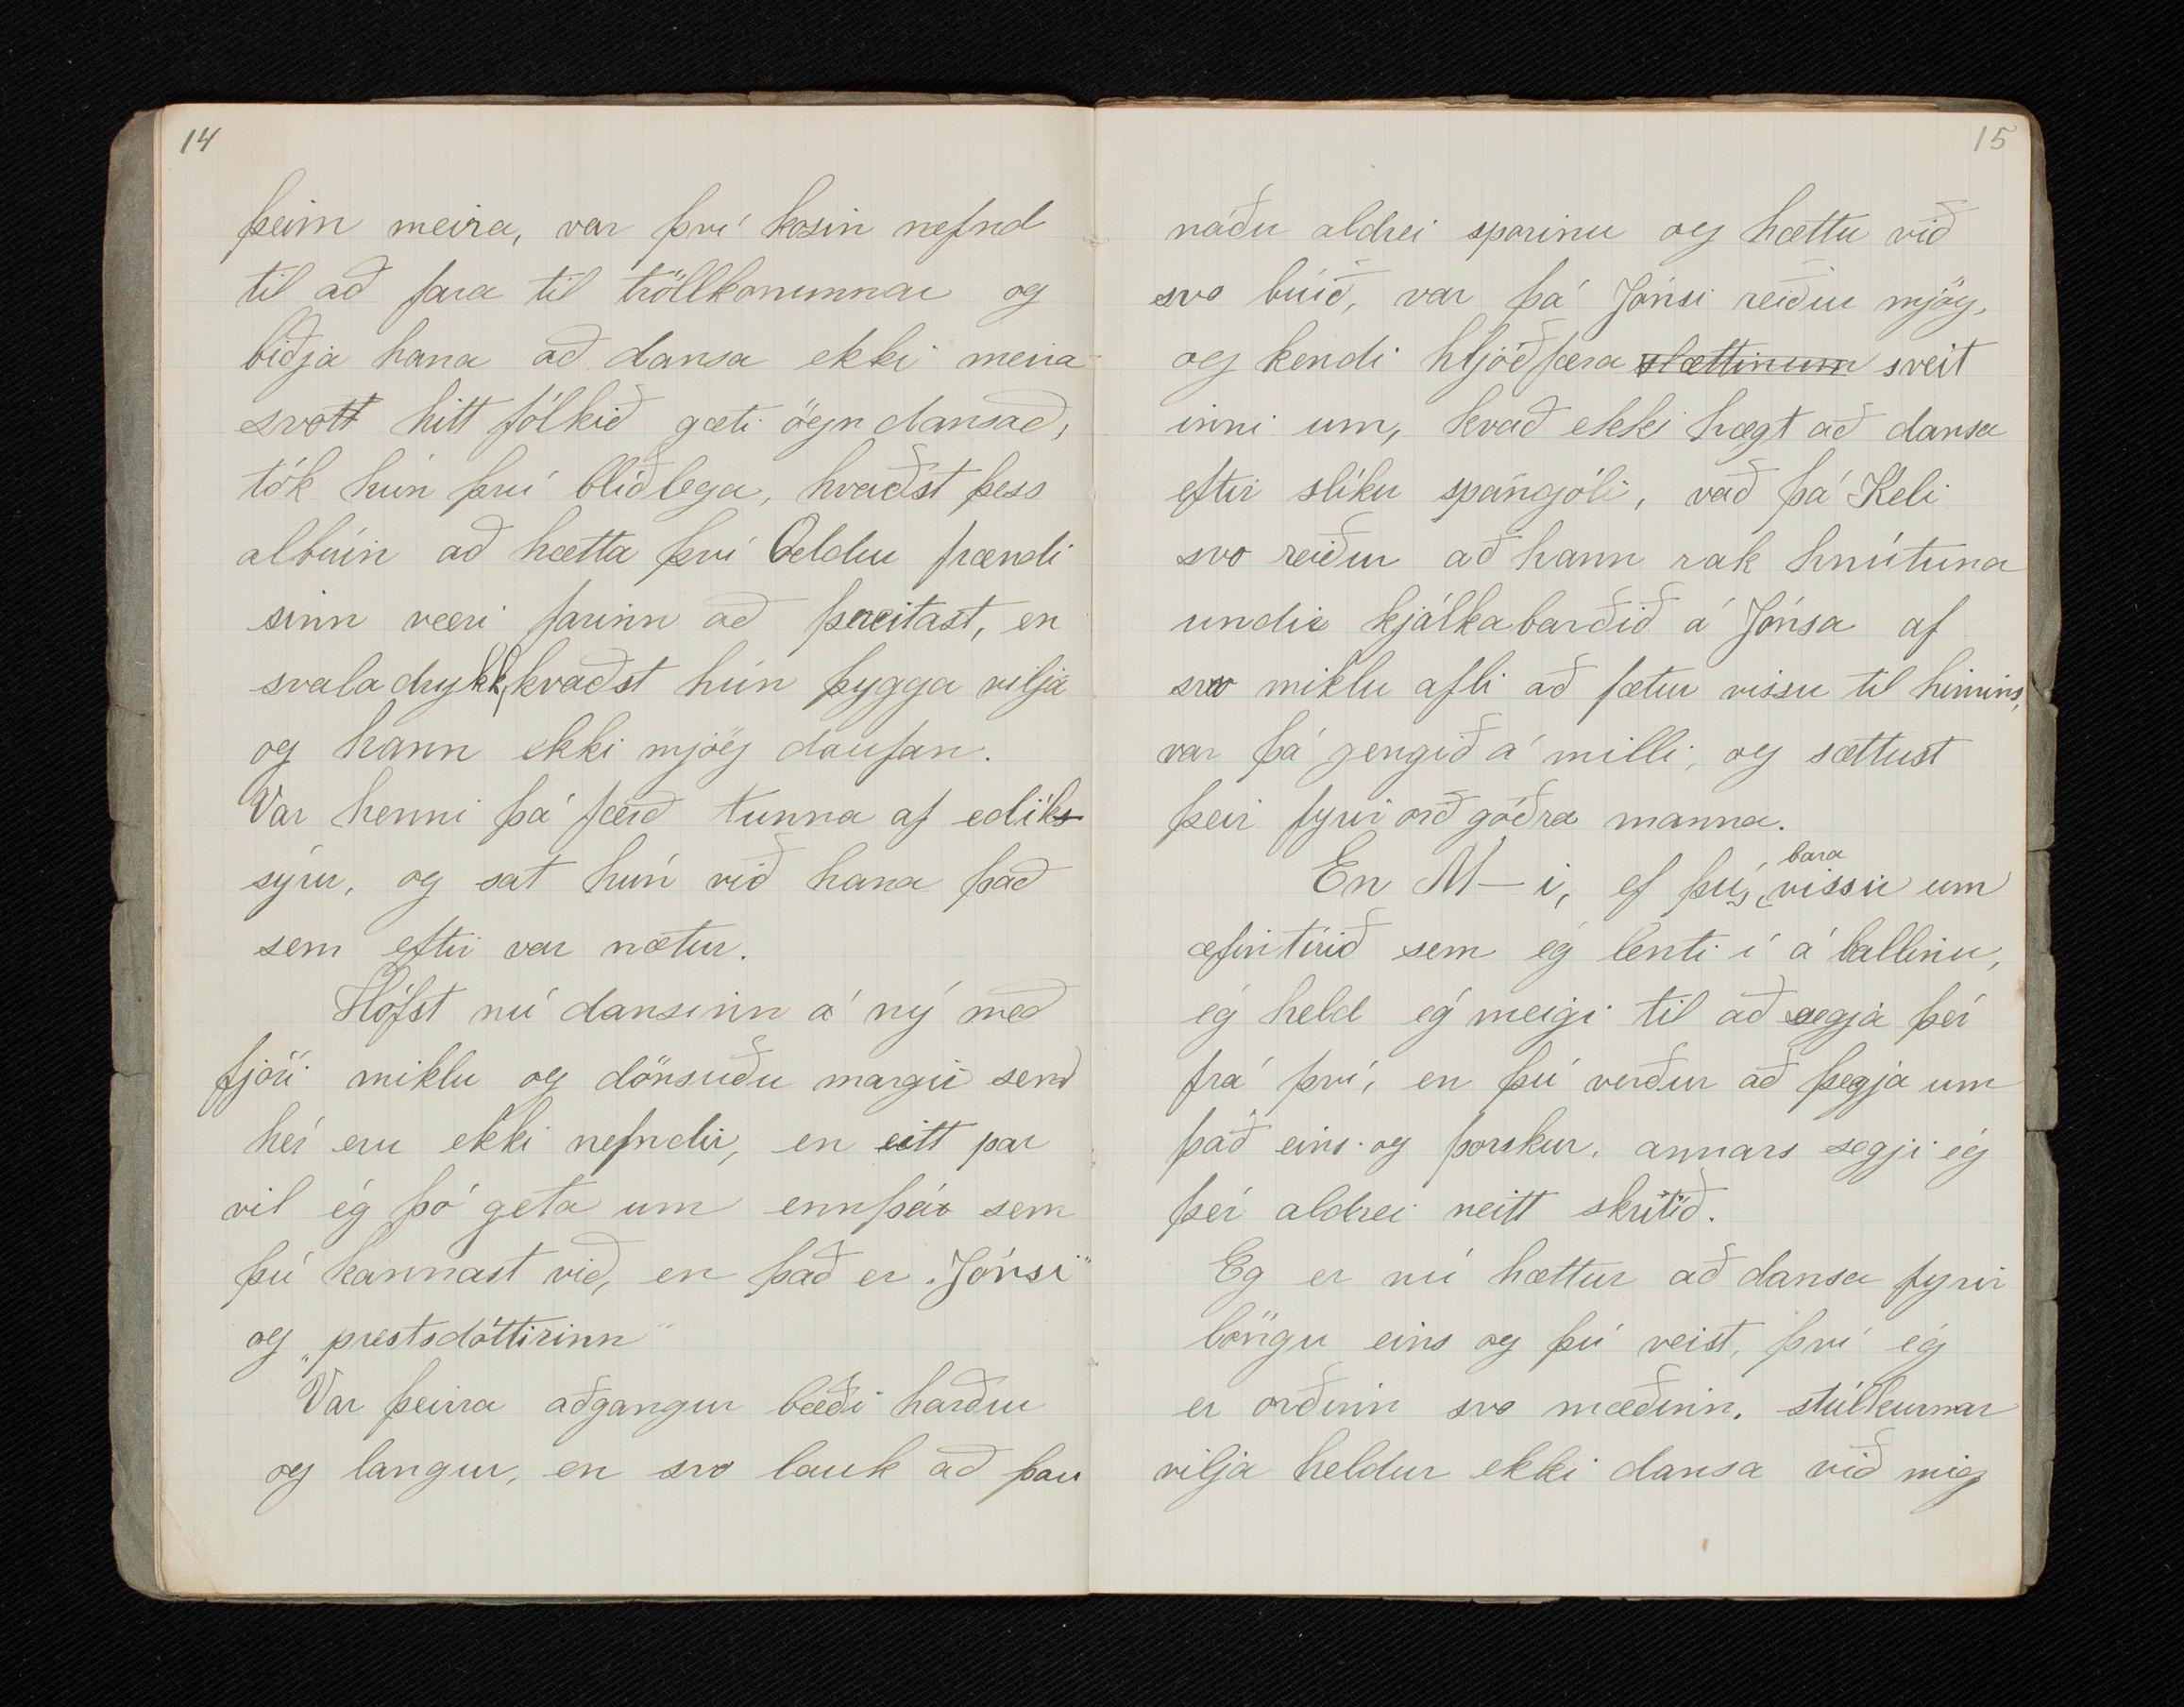 14
þeim meira, var því kosin nefnd
til að fara til tröllkonunnar og
biðja hana að dansa ekki meira
svott hitt fólkið gæti ögn dansað,
tók hún því blíðlega, kvaðst þess
albúin að hætta því Oeldur frændi
sinn væri farinn að þreitast, en
svaladrykk, kvaðst hún þygga vilja
og hann ekki mjög daufan.
Var henni þá færð tunna af ediks
sýru, og sat hún við hana það
sem eftir var nætur.
Hófst nú dansinn á ný með
fjöri miklu og dönsuðu margir sem
hér eru ekki nefndir, en eitt par
vil ég þó geta um ennþá sem
þú kannast við, en það er „Jónsi"
og „prestsdóttirinn"
Var þeirra aðgangur bæði harður
og langur, en svo lauk að þau
15
náðu aldrei sporinu og hættu við
svo búið, var þá Jónsi reiður mjög,
og kendi hljóðfæra slættinum sveit
inni um, kvað ekki hægt að dansa
eftir slíku spángóli, varð þá Keli
svo reiður að hann rak hnútuna
undir kjálkabarðið á Jónsa af
svo miklu afli að fætur vissu til himins,
var þá gengið á milli, og sættust
þeir fyrir orð góðra manna.
En M–i, ef þú, bara vissir um
æfintírið sem ég lenti í á ballinu,
ég held ég meigi til að segja þér
frá því, en þú verður að þegja um
það eins og þorskur, annars segji ég
þér aldrei neitt skrítið.
Eg er nú hættur að dansa fyrir
löngu eins og þú veist, því ég
er orðinn svo mæðinn, stúlkurnar
vilja heldur ekki dansa við mig